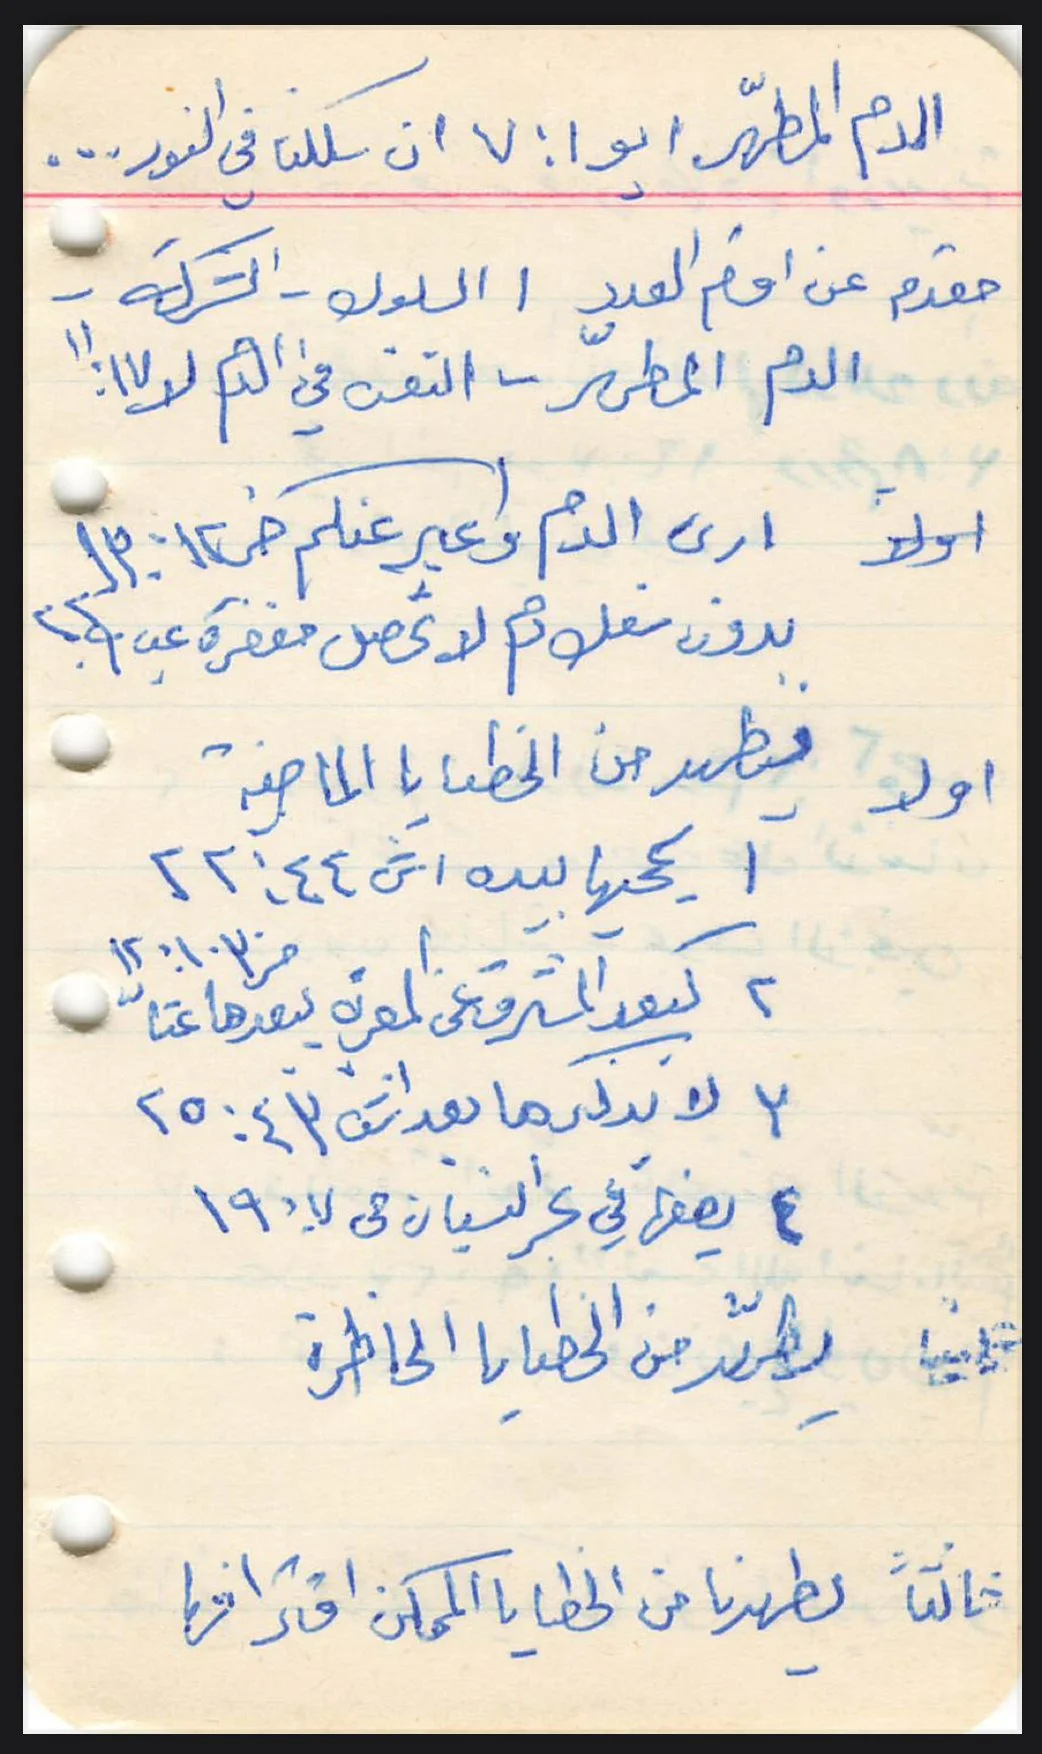 الدم المطهّر ١ يو ١: ٧ ان سلكنا في النور...
مقدم عن اوقم العدد ١ السلوك - الشركة -
الدم المطهّر - النفس في الدم لا ١٧: ١١
اولا ارى الدم واعبر عنكم خر ١٢: ١٣
بدون سفك دم لا تحصل مغفرة عب ٩: ٢٢
اولا فيطهر من الخطايا الماضية
١ يمحيها بيده اش ٤٤: ٢٢
مز ١٠٣: ١٢
٢ كبعد المشرق عن المغرب يبعدها عنا
٣ لا يذكرها بعد اش ٤٣: ٢٥
٤ يضعها في بحر النسيان مى ٧: ١٩
ثانيا يطهّر من الخطايا الحاضرة
ثالثاً يطهرنا من الخطايا الممكن اقترافها